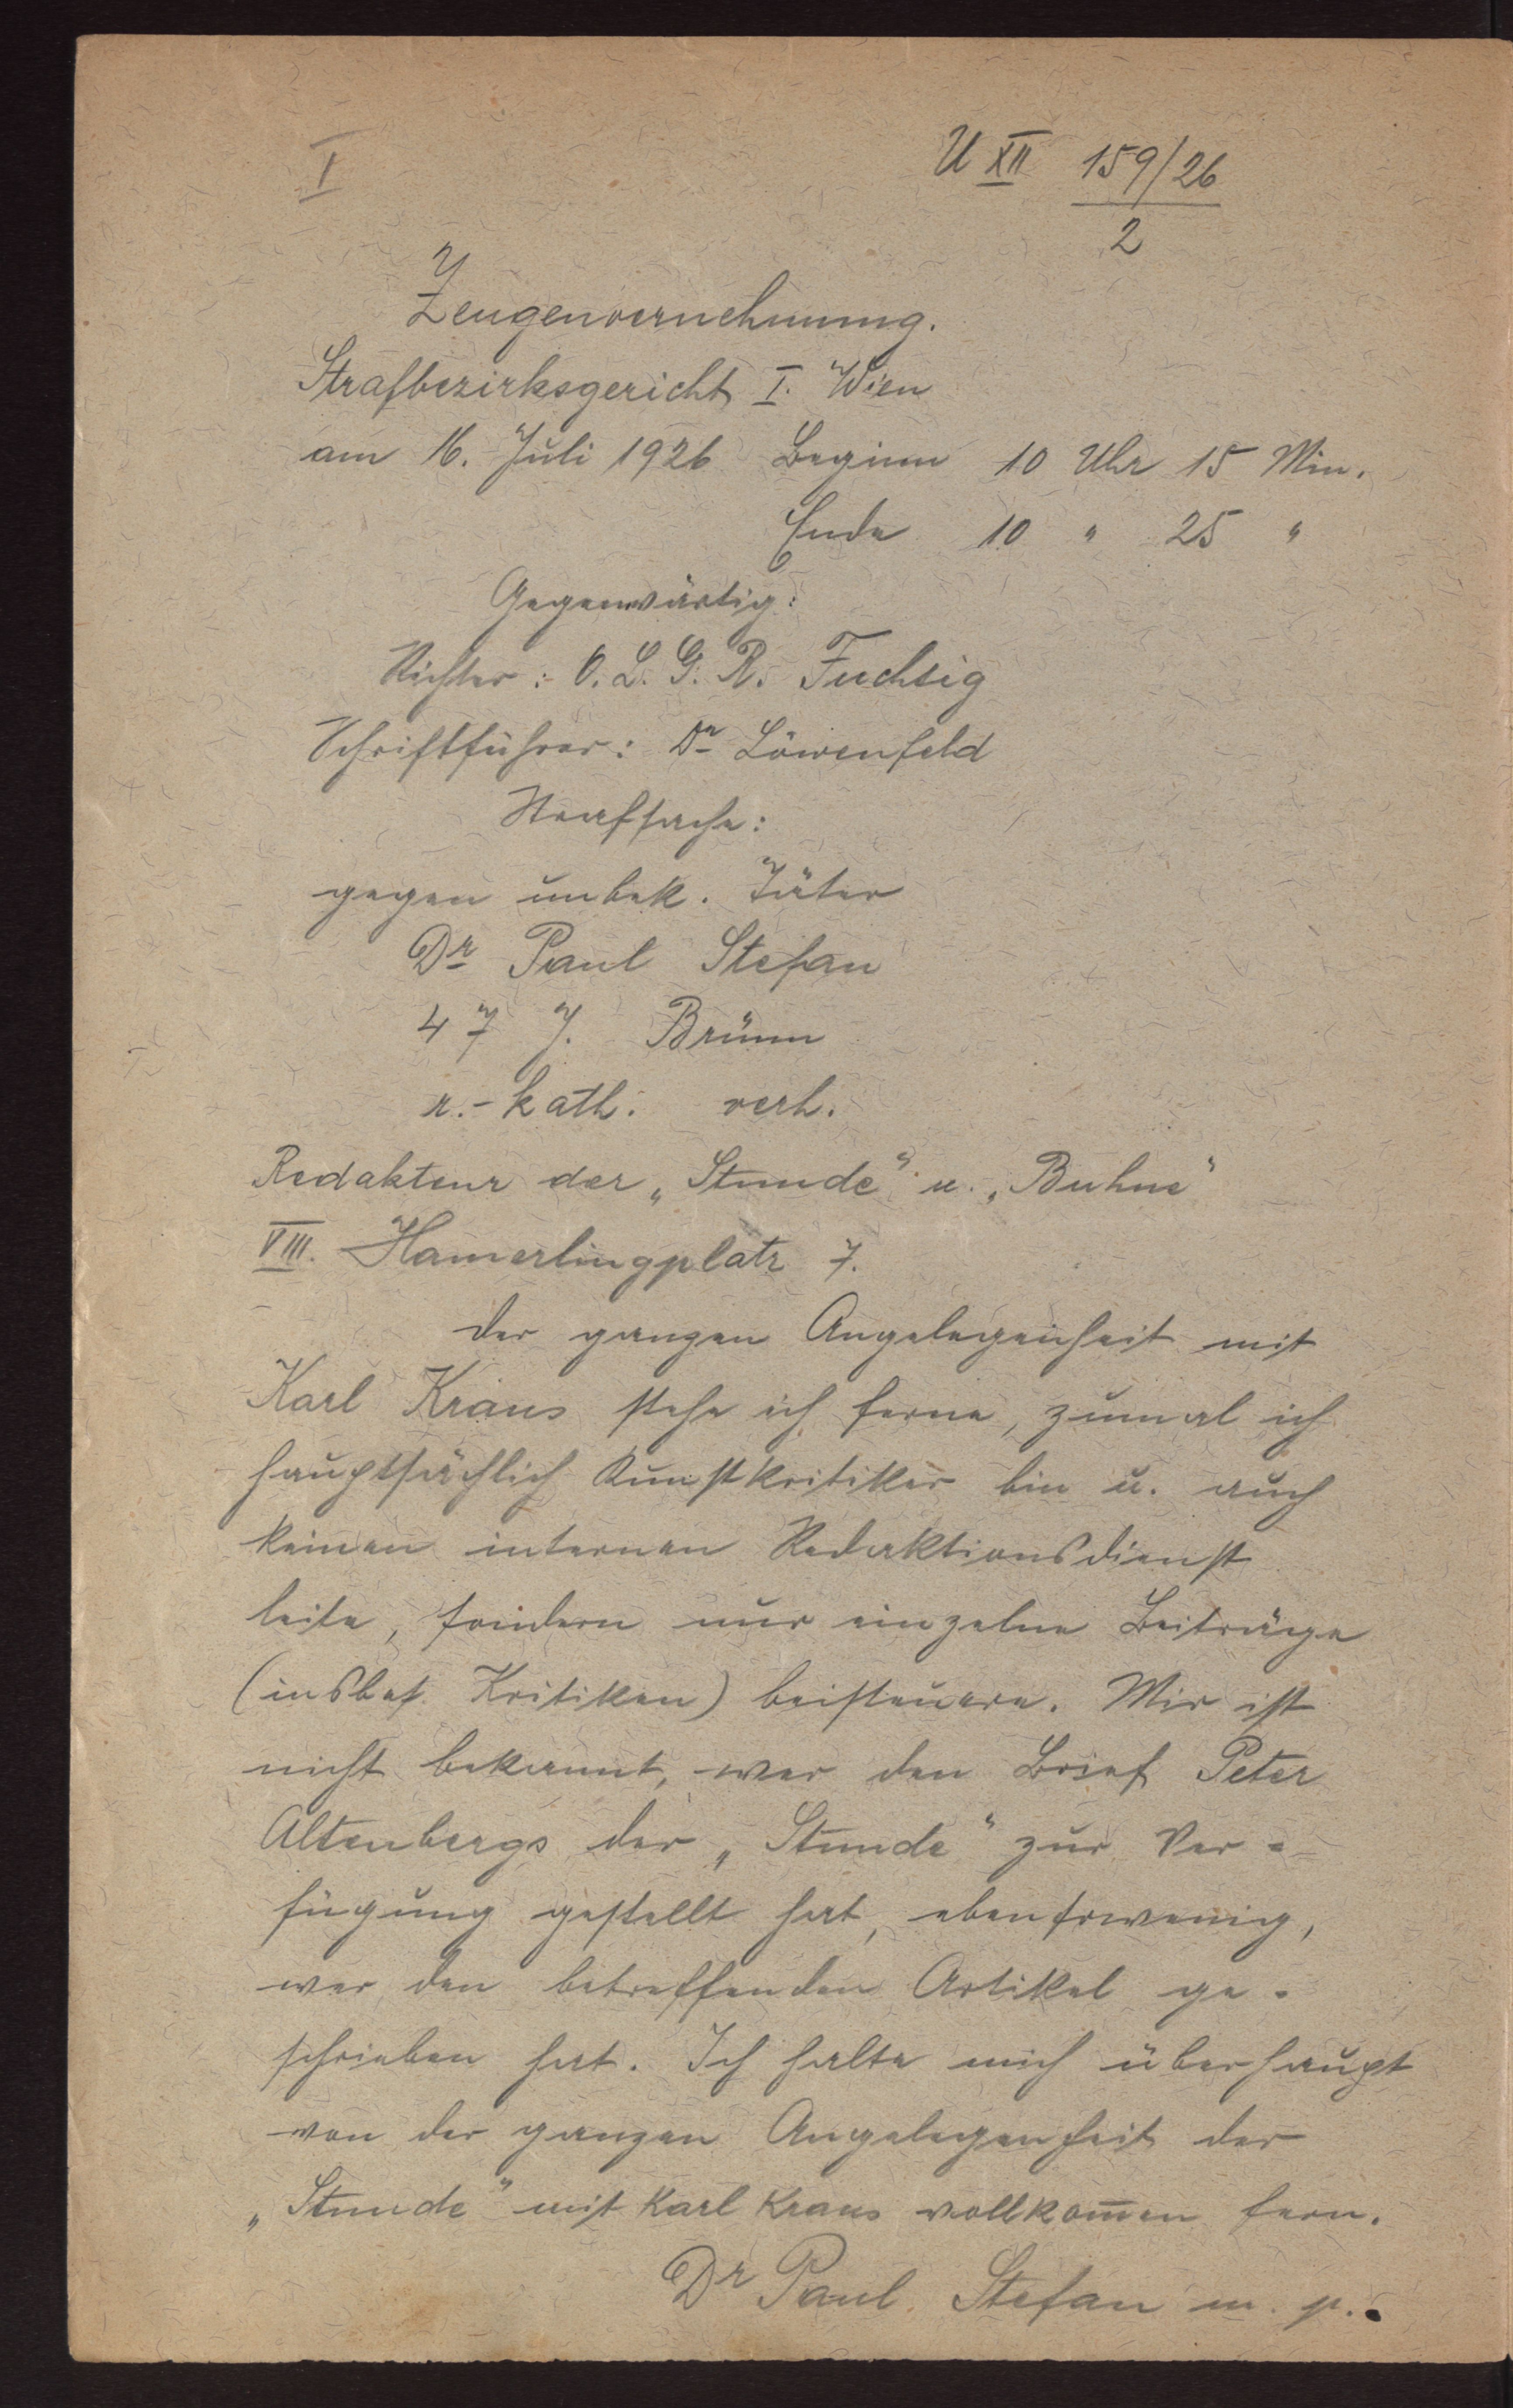 I
U XII 159/26
2
Zeugenvernehmung.
Strafbezirksgericht I. Wien
am 16. Juli 1926 Beginn 10 Uhr 15 Min.
Ende 10 " 25 "
Gegenwärtig:
Richter: O. L. G. R. Fuchsig
Schriftführer: Dr Löwenfeld
Strafsache:
gegen unbek. Täter
Dr Paul Stefan
47 J. Brünn
r.-kath. verh.
Redakteur der „Stunde" u. „Buhne"
VIII. Hamerlingplatz 7.
Der ganzen Angelegenheit mit
Karl Kraus stehe ich ferne, zumal ich
hauptsächlich Kunstkritiker bin u. auch
keinen internen Redaktionsdienst
leite, sondern nur einzelne Beiträge
(insbes. Kritiken) beisteuere. Mir ist
nicht bekannt, wer den Brief Peter
Altenbergs der „Stunde" zur Ver=
fügung gestellt hat, ebensowenig,
wer den betreffenden Artikel ge-
schrieben hat. Ich halte mich überhaupt
von der ganzen Angelegenheit der
„Stunde" mit Karl Kraus vollkom̅en fern.
Dr Paul Stefan m. p.